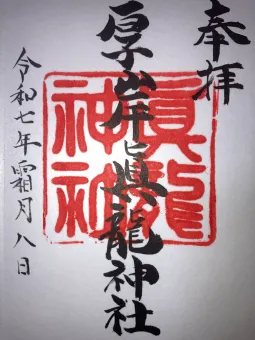 奉拝
厚岸眞龍神社
令和七年霜月八日
眞龍
神社